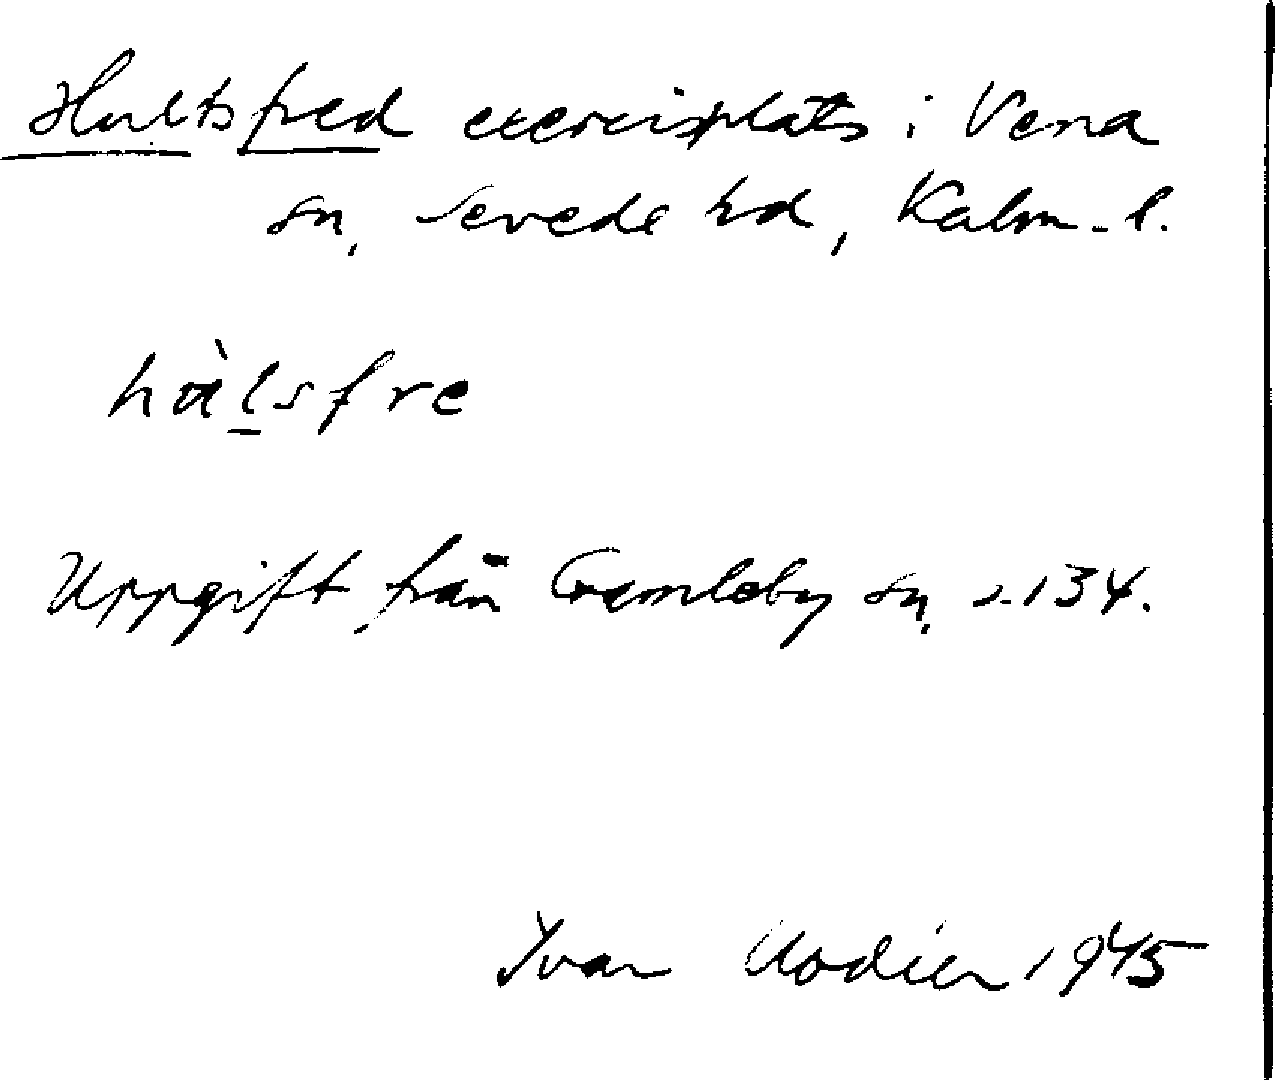 Hultsfred exercisplats i Vena
sn, Sevede hd, Kalm. l.
hàlsfre
Uppgift från Gamleby sn, s. 134.
Ivar Modéer 1945